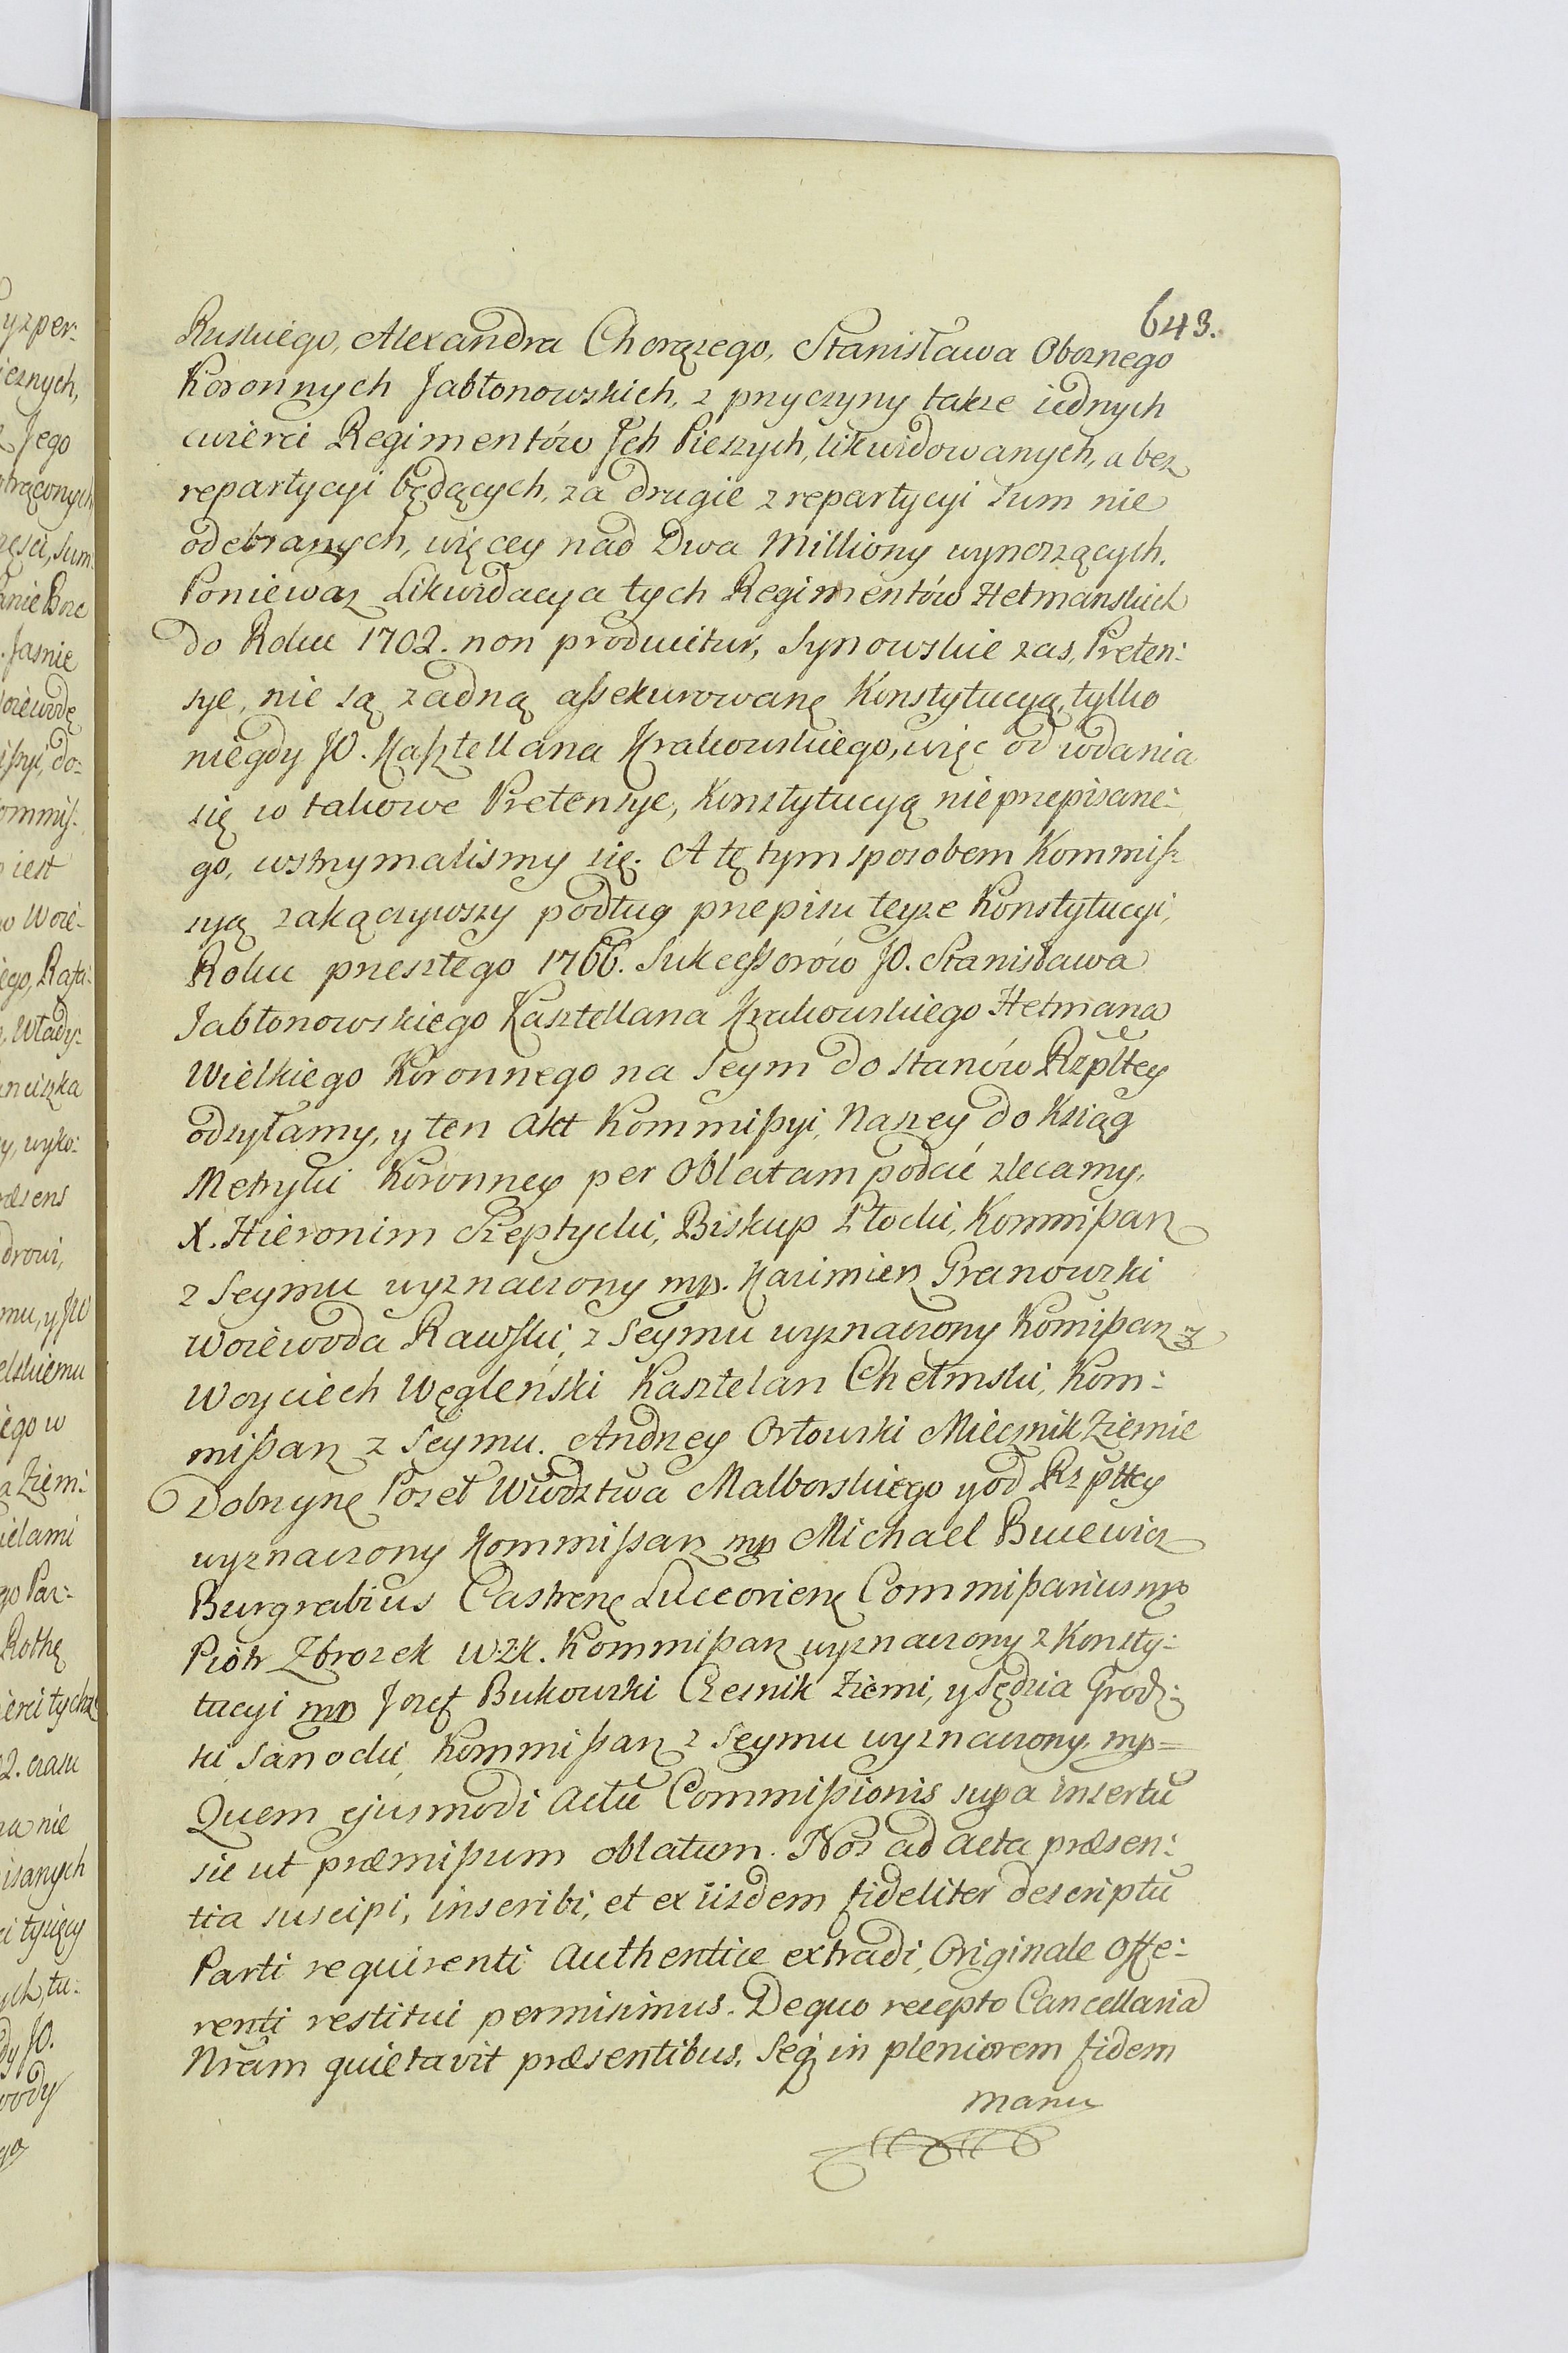 643.
Ruskiego, Alexandra Chorązego, Stanisława Oboznego
Koronnych Jabłonowskich, z przyczyny takze iednych
cwierci Regimentów Jch Pieszych, likwidowanych, a bez
repartycyi będących, za drugie z repartycyi sum nie
odebranych, więcey nad Dwa Milliony wynoszących.
Poniewaz Likwidacya tych Regimentów Hetmanskich
do Roku 1702. non producitur, Synowskie zas, Preten:
sye, nie są zadną assekurowanę Konstytucyą, tylko
niegdy JO. Kasztellana Krakowskiego, więc od wdania
się w takowe Pretensye, Konstytucyą nieprzepisane:
go, wstrzymalismy się. A tę tym sposobem Kommis:
syą zakączywszy podług przepisu teyze Konstytucyi,
Roku przeszłego 1766. Sukcessorów JO. Stanisława
Jabłonowskiego Kasztellana Krakowskiego Hetmana
Wielkiego Koronnego na Seym do stanów Rzpltey
odsyłamy, y ten Akt Kommissyi, Naszey do Ksiąg
Metryki Koronney per Oblatam podać zlecamy.
X. Hieronim Szeptycki, Biskup Płocki, Kommissarz
z Seymu wyznaczony mp. Kazimierz Granowski
Woiewoda Rawski, z Seymu wyznaczony Komissarz
Woyciech Węgleński Kasztelan Chełmski, Kom:
missarz z Seymu. Andrzey Orłowski Miecznik Ziemie
Dobrzynę Poseł Wwdztwa Malborskiego y od Rzpltey
wyznaczony Kommissarz mp Michael Bucewicz
Burgrabius Castrenę Luceorienę Commissarius mp
Piotr Zbrozek W.Z.K. Kommissarz wyznaczony z Konsty:
tucyi mp Jozef Bukowski Czesnik Ziemi, y Sędzia Grodz:
ki Sanocki, Kommissarz z Seymu wyznaczony. mp=
Quem ejusmodi Actũ Commissionis supa insertũ
sic ut præmissum oblatum. Nos ad Acta præsen:
tia suscipi, inscribi, et ex iisdem fideliter descriptũ
Parti requirenti Authentice extradi, Originale Offe:
renti restitui permisimus. De quo recepto Cancellaria
Nram quietavit præsentibus. Seq in pleniorem fidem
manu